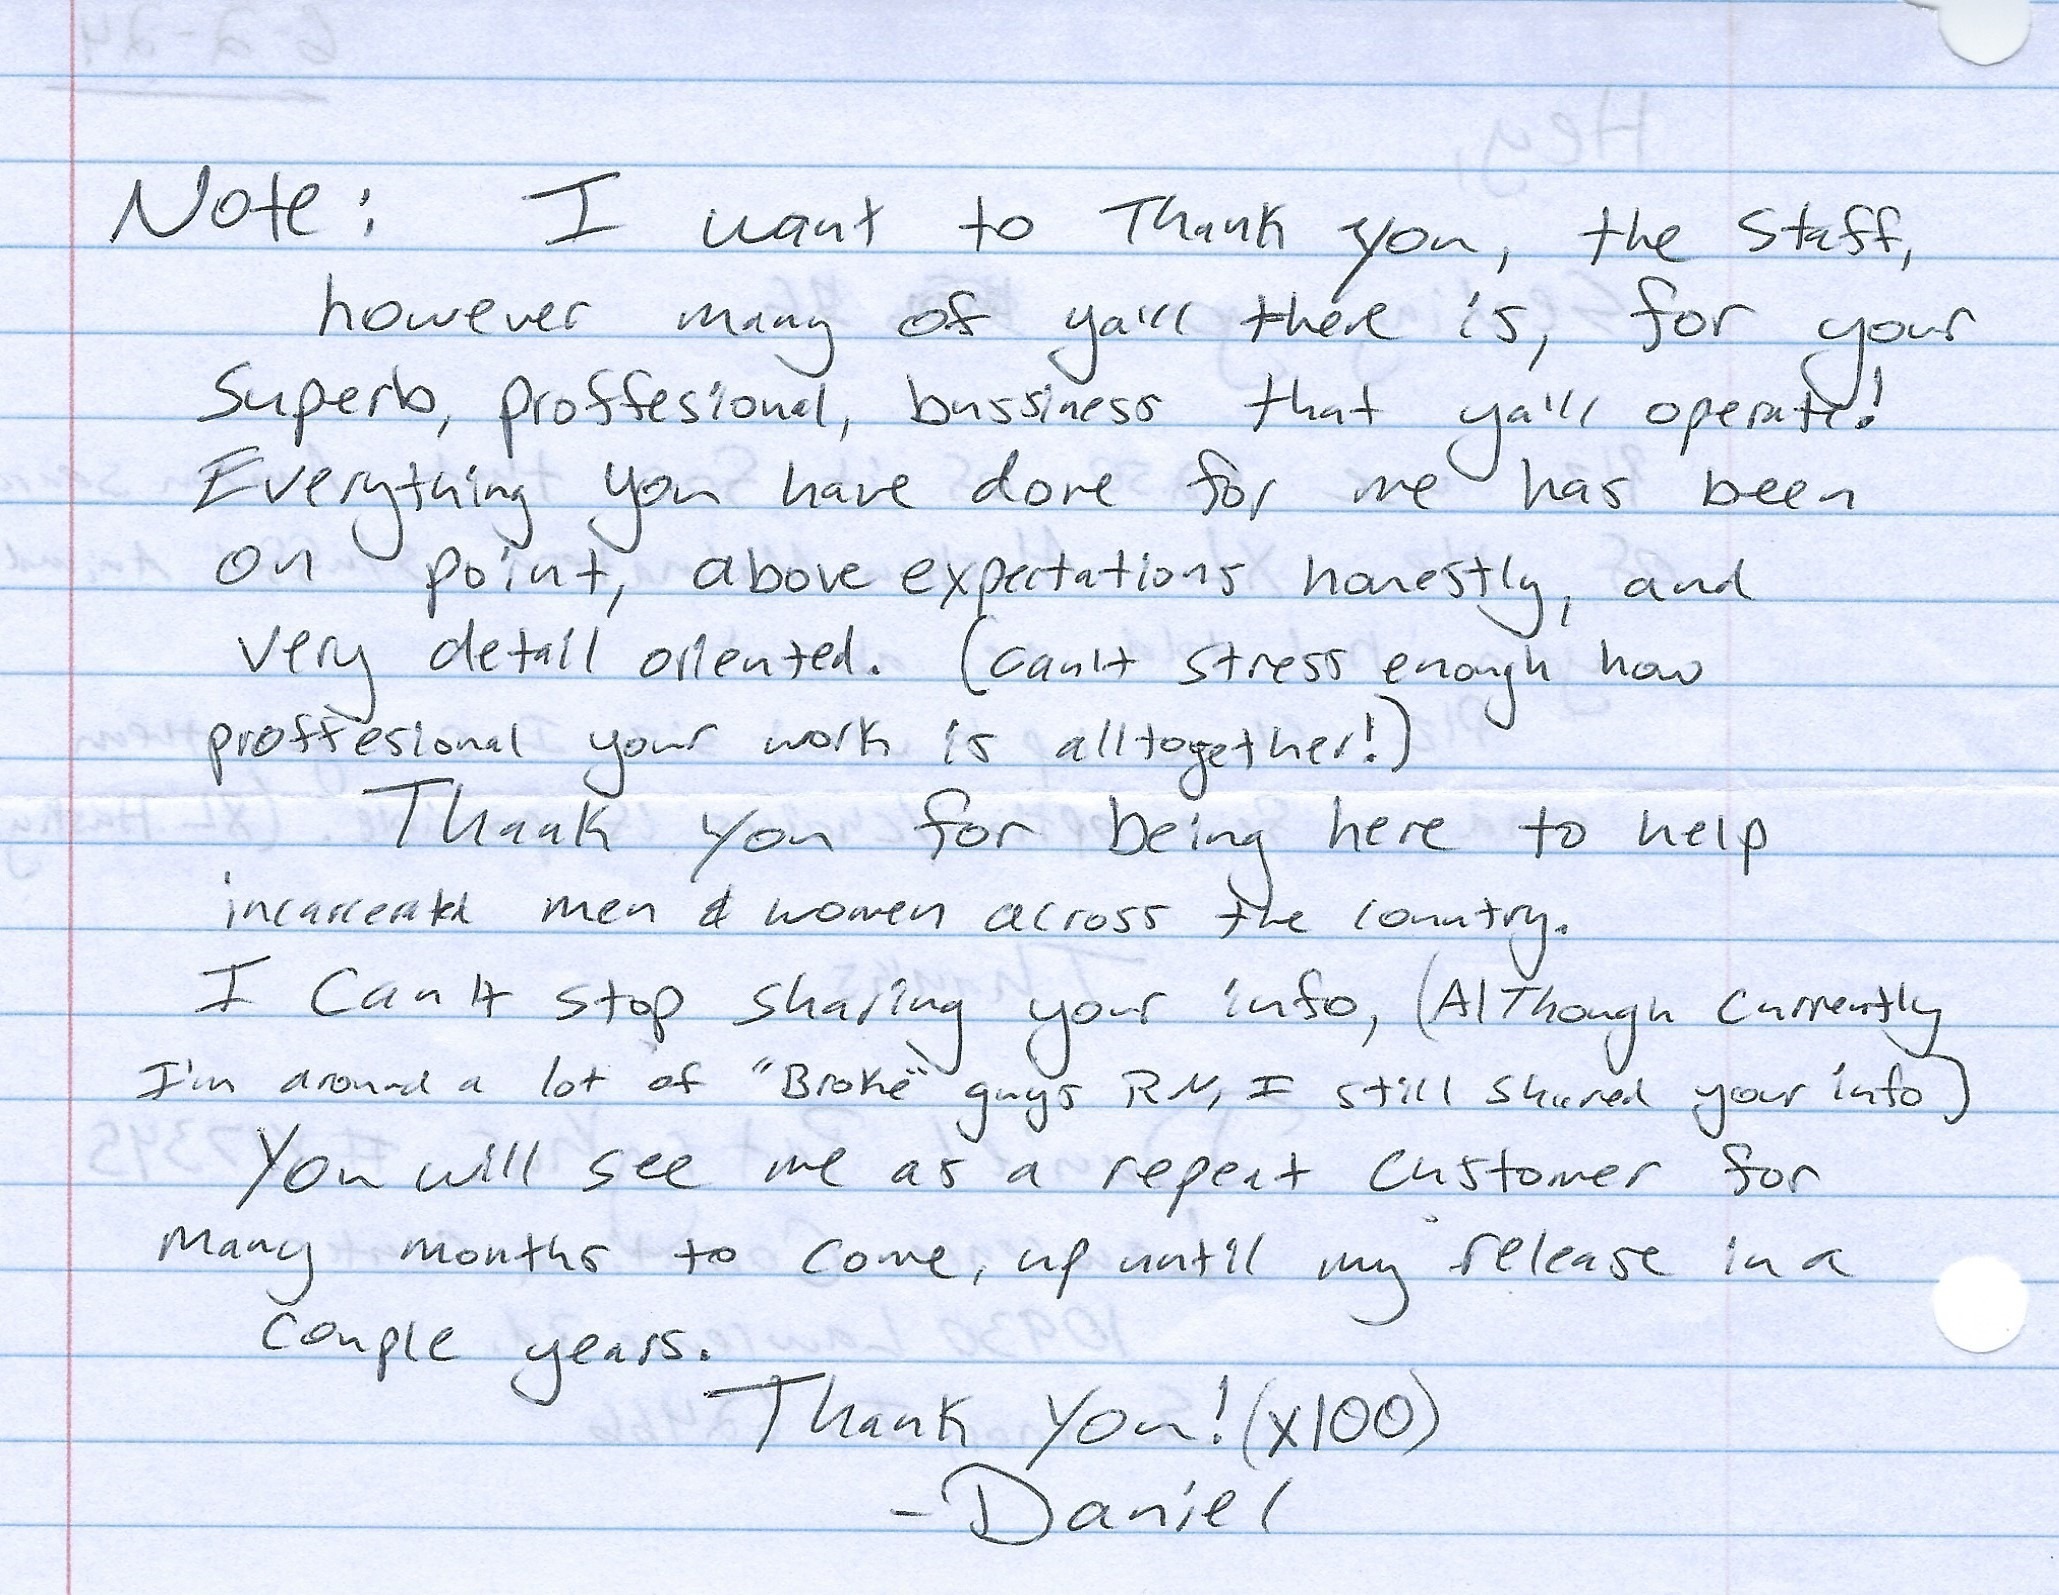 Note: I want to Thank you, the staff,
however many of ya'll there is, for your
Superb, proffesional, bussiness that ya'll operate!
Everything you have done for me has been
on point, above expectations honestly, and
very detail oriented. (can't stress enough how
proffesional your work is alltogether!)
Thank you for being here to help
incarcerated men & women across the country.
I Can't stop sharing your info, (AlThough Currently
I'm around a lot of "Broke" guys RN, I still shared your info)
You will see me as a repeat Customer for
many months to come, up until my release in a
couple years.
Thank You! (x100)
-Daniel
6-2-24
Hey,